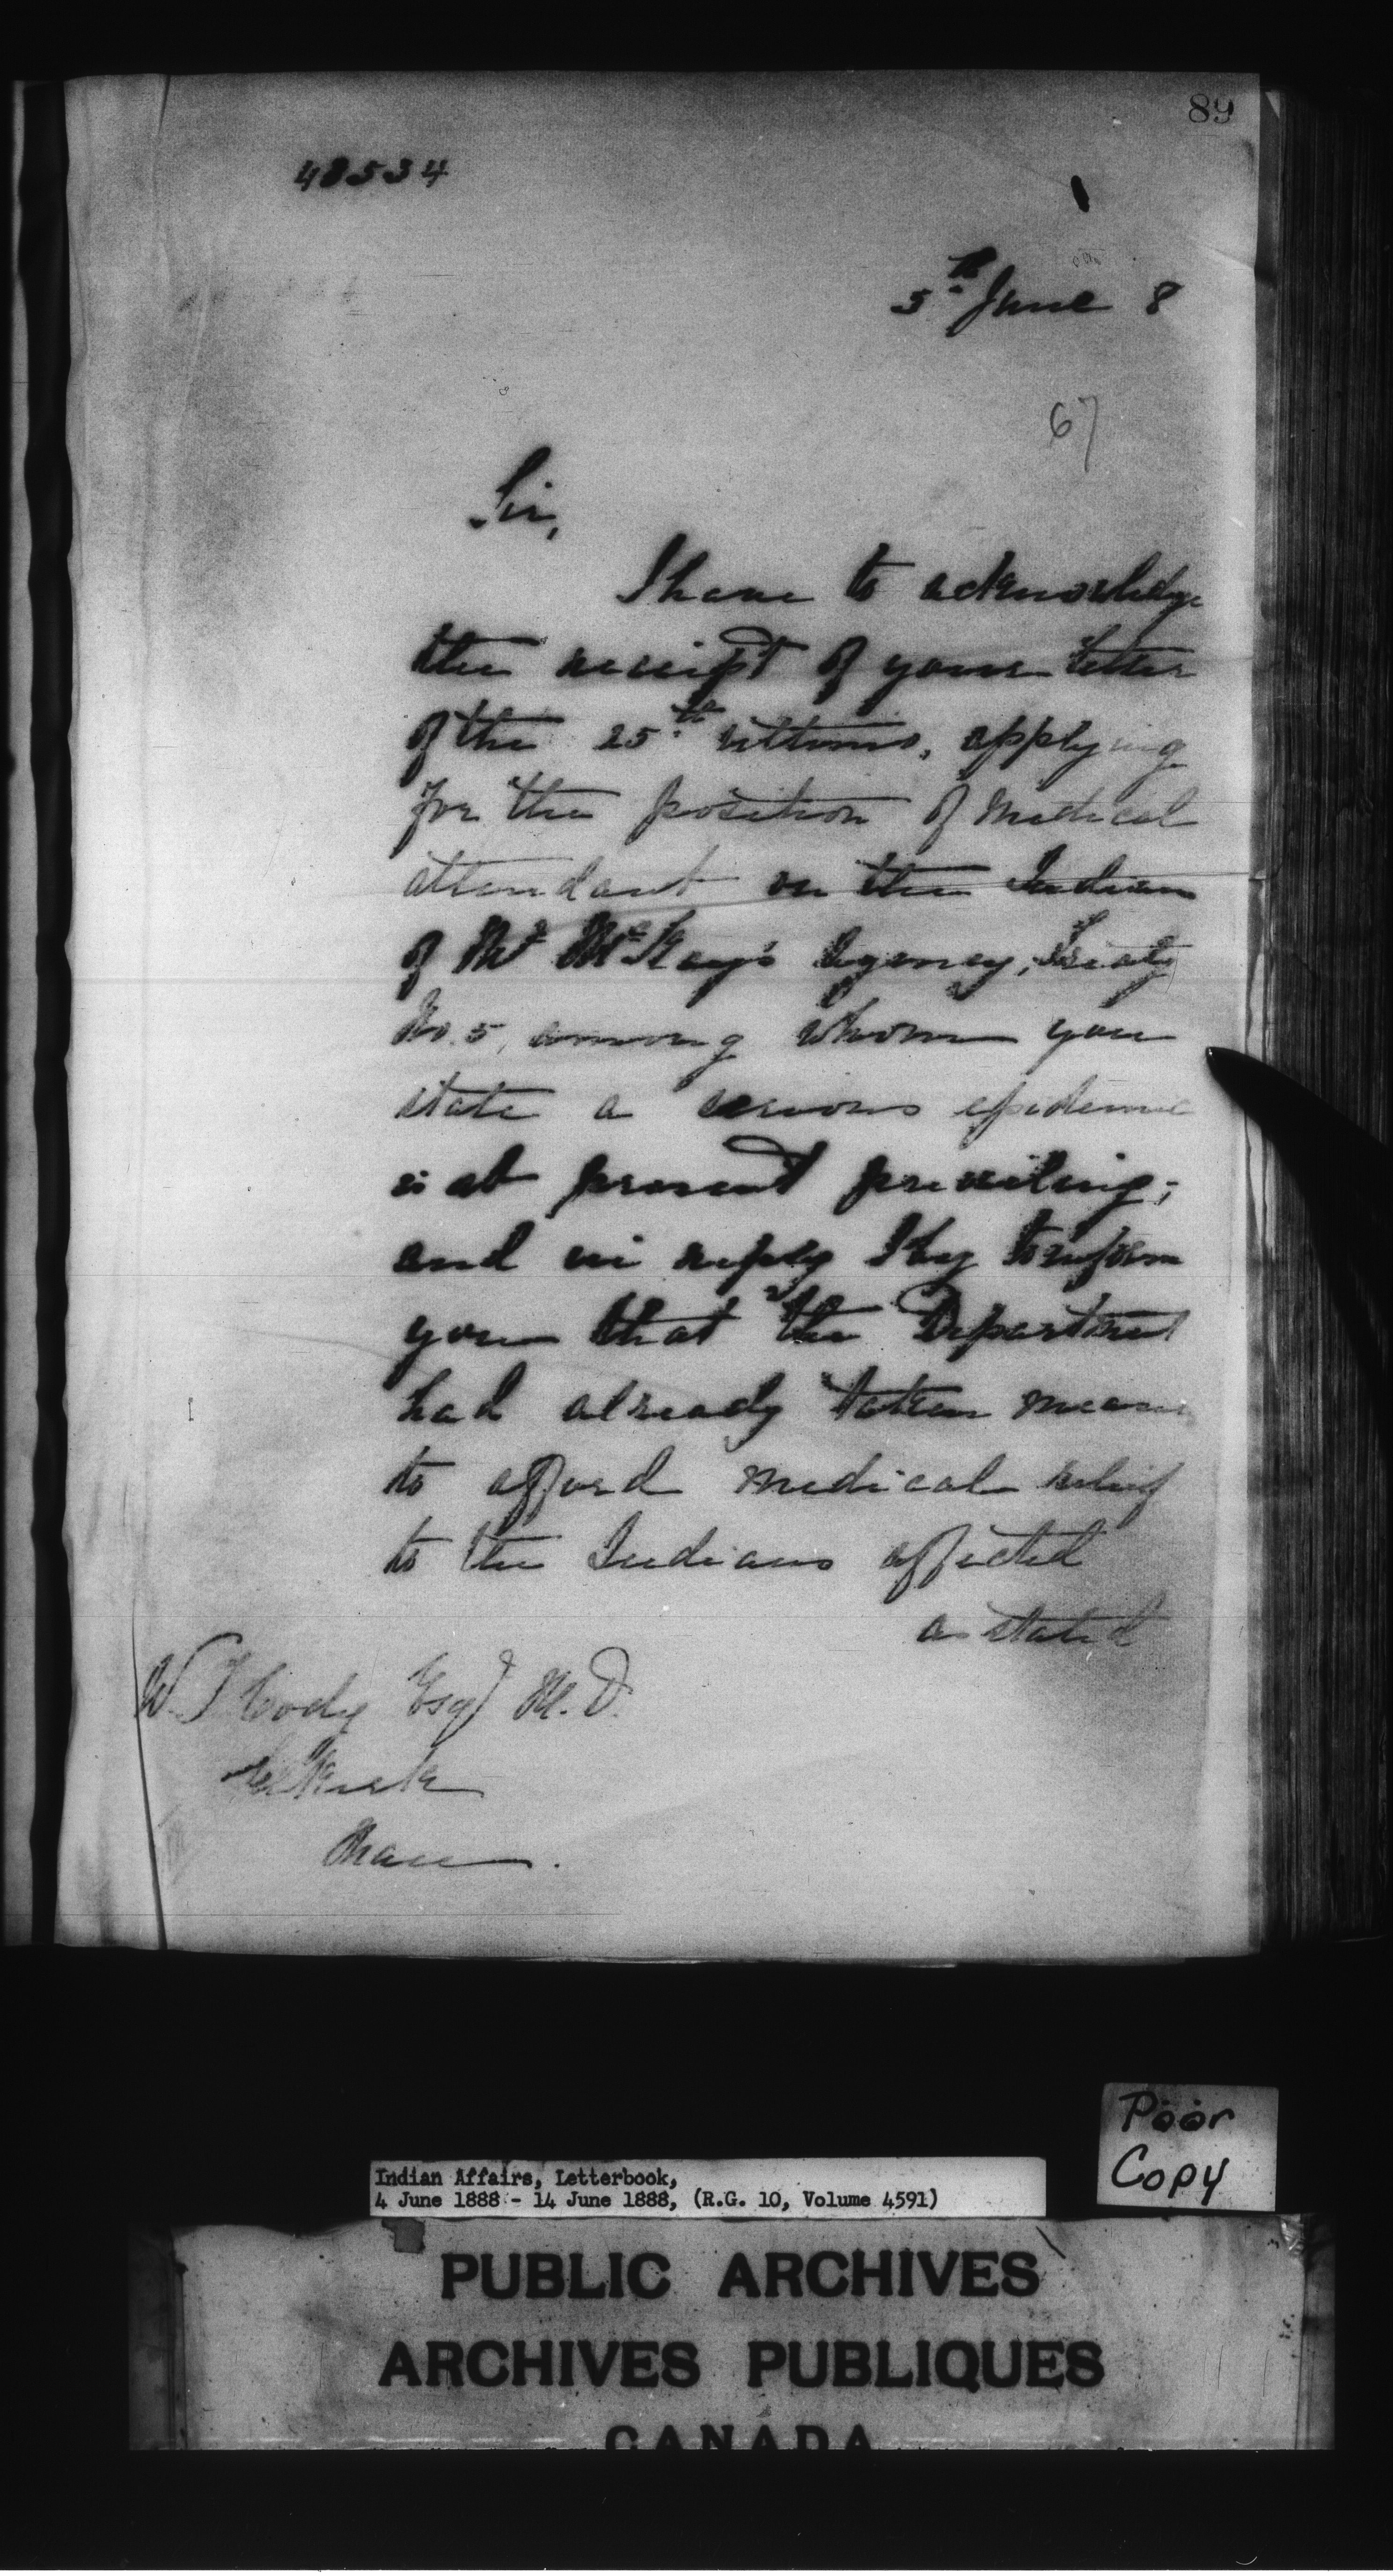 89
48534
5th June 8
67
Sir,
I have to acknowledge
the receipt of your letter
of the 25th ultimo, applying
for the position of Medical
attendant on the Indians
of Mr McKay's Agency, Treaty
No. 5, among whom you
state a serious epidemic
is at present prevailing;
and in reply I beg to inform
you that the Department
had already taken means
to afford medical relief
to the Indians afflicted
as stated
W. Cody Esqr M.D.
Selkirk
Man.
Poor
Copy
Indian Affairs, Letterbook,
4 June 1888 - 14 June 1888, (R.G. 10, Volume 4591)
PUBLIC ARCHIVES
ARCHIVES PUBLIQUES
CANADA